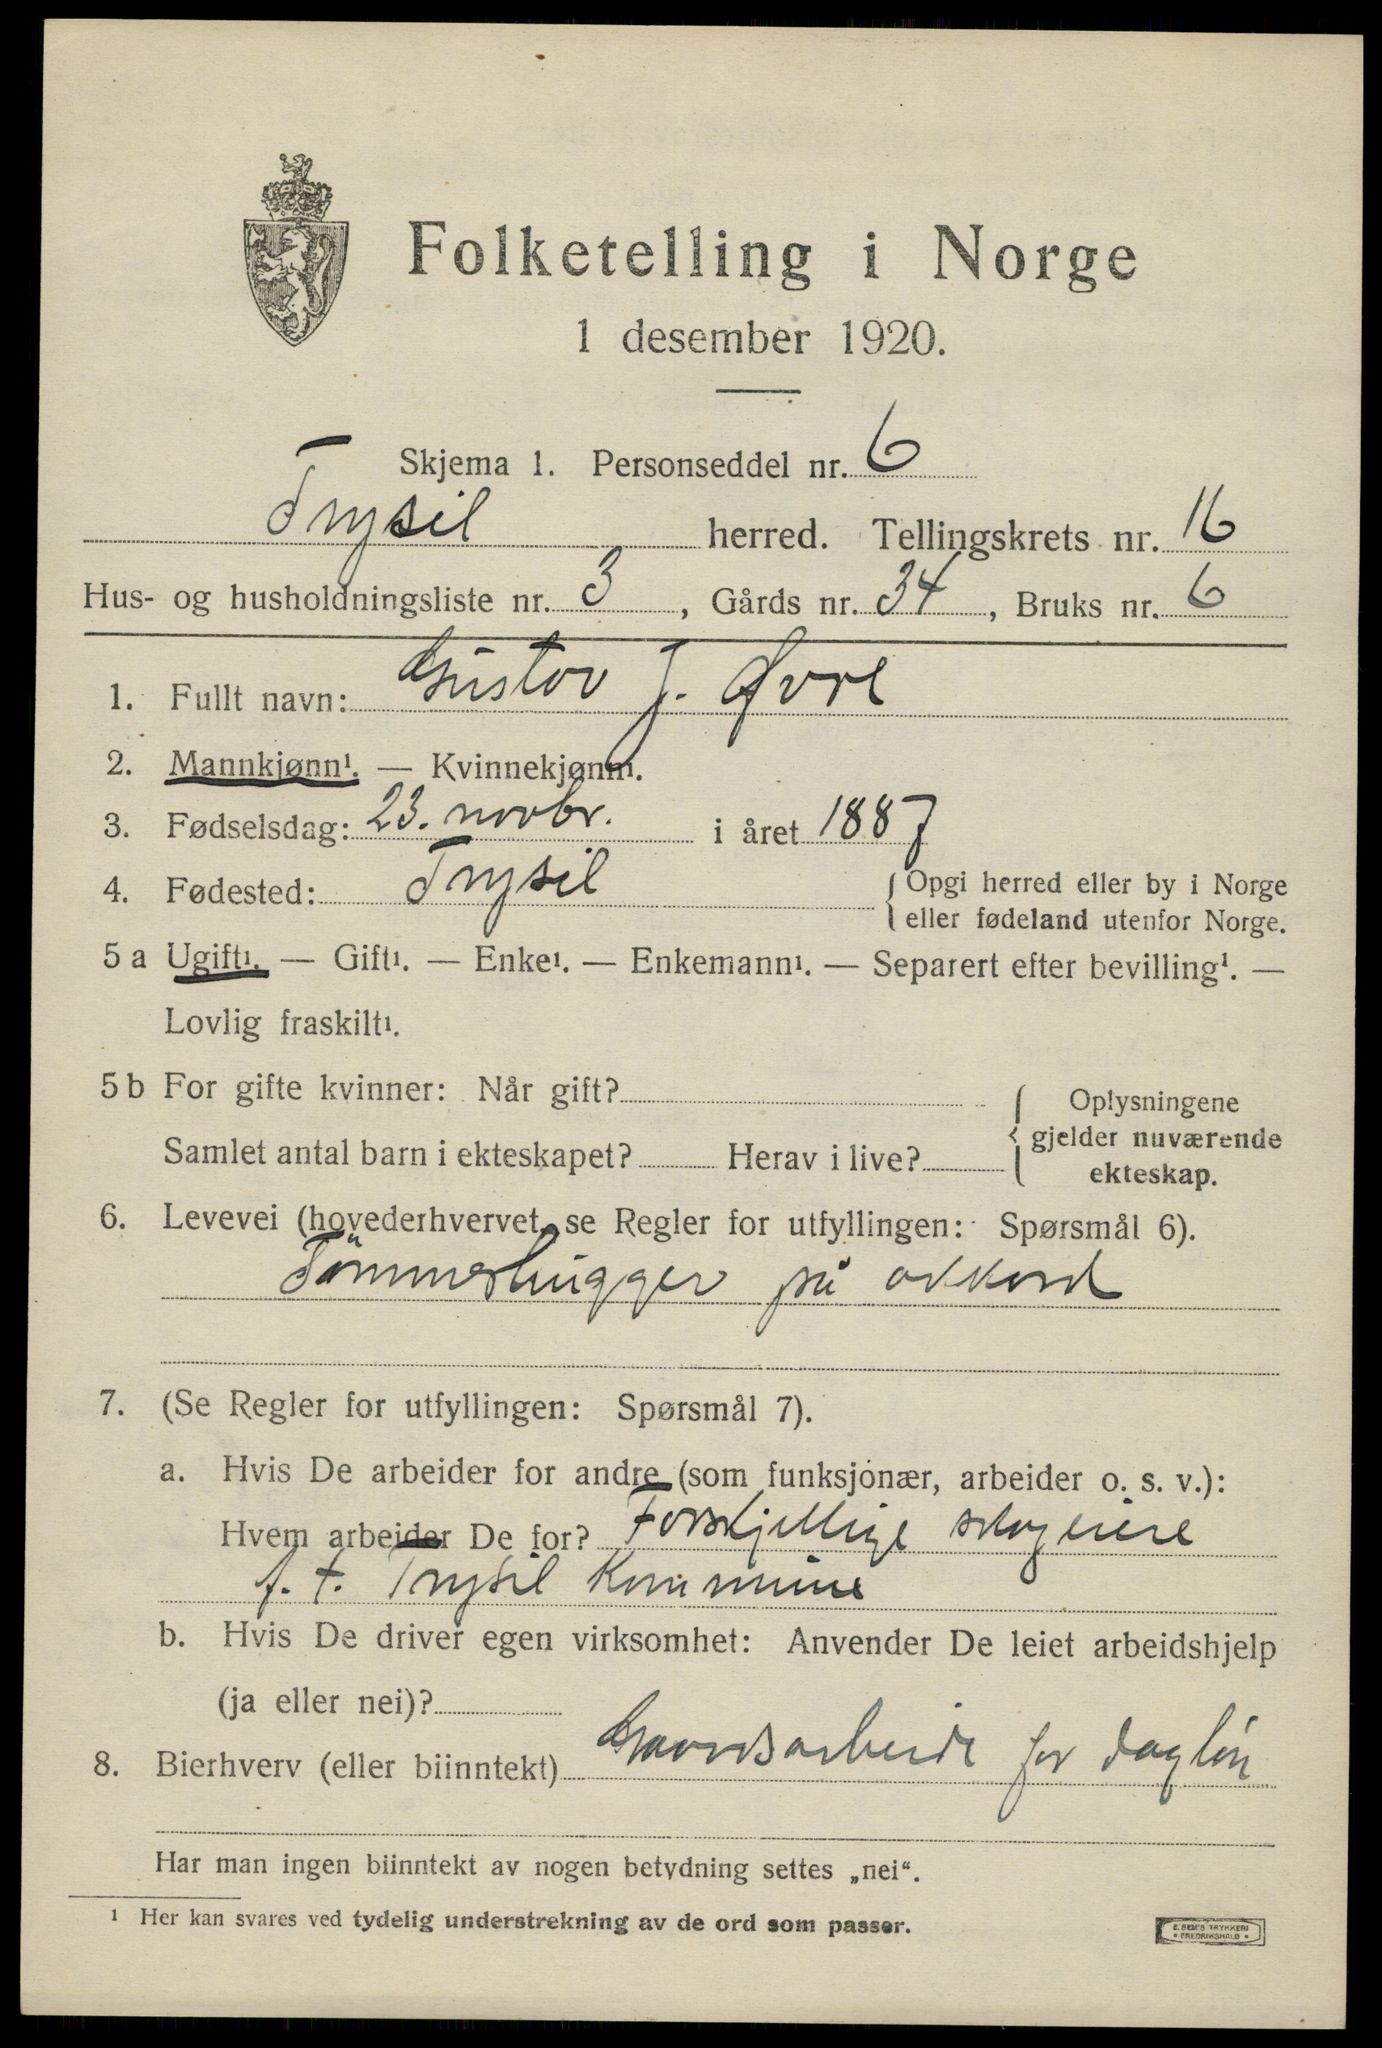 Folketelling i Norge
1 desember 1920.
Skjema 1. Personseddel nr. 6
Trysil herred. Tellingskrets nr. 16
Hus- og husholdningsliste nr. 3, Gårds nr. 34, Bruks nr. 6
1. Fullt navn: Gustav J. Øvre
2. Mannkjønn¹. — Kvinnekjønn¹.
3. Fødselsdag: 23. novbr. i året 1887
4. Fødested: Trysil
Opgi herred eller by i Norge
eller fødeland utenfor Norge.
5 a Ugift¹. — Gift¹. — Enke¹. — Enkemann¹. — Separert efter bevilling¹. —
Lovlig fraskilt¹.
5 b For gifte kvinner: Når gift?
Samlet antal barn i ekteskapet? Herav i live?
Oplysningene
gjelder nuværende
ekteskap.
6. Levevei (hovederhvervet, se Regler for utfyllingen: Spørsmål 6).
Tömmerhugger på akkord
7. (Se Regler for utfyllingen: Spørsmål 7).
a. Hvis De arbeider for andre (som funksjonær, arbeider o. s. v.):
Hvem arbeider De for? Forskjellige skogeiere
f. t. Trysil Kommune
b. Hvis De driver egen virksomhet: Anvender De leiet arbeidshjelp
(ja eller nei)?
8. Bierhverv (eller biinntekt) Gaardsarbeide for daglön
Har man ingen biinntekt av nogen betydning settes „nei“.
¹ Her kan svares ved tydelig understrekning av de ord som passer.
E. SEM'S TRYKKERI
• FREDRIKSHALD •